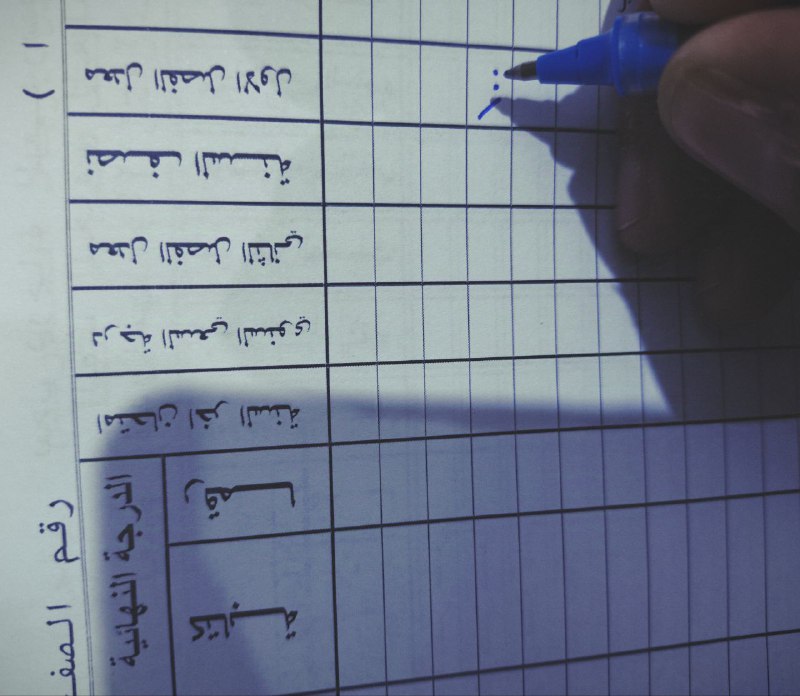 معدل الفصل الاول
نصف السنة
معدل الفصل الثاني
درجة السعي السنوي
امتحان اخر السنة
الدرجة النهائية
رقماً
كتابة
رقم الصف
( ١